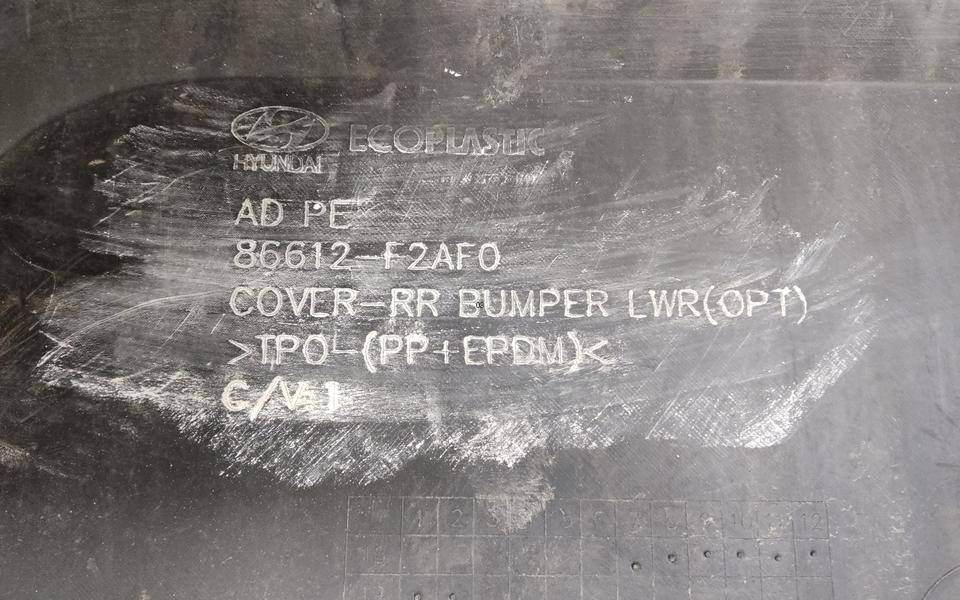 HYUNDAI ECOPLASTIC
AD PE
86612-F2AF0
COVER-RR BUMPER LWR(OPT)
>TPO-(PP+EPDM)<
C/V:1
1 2 3 5 6 7 8 9 10 11 12